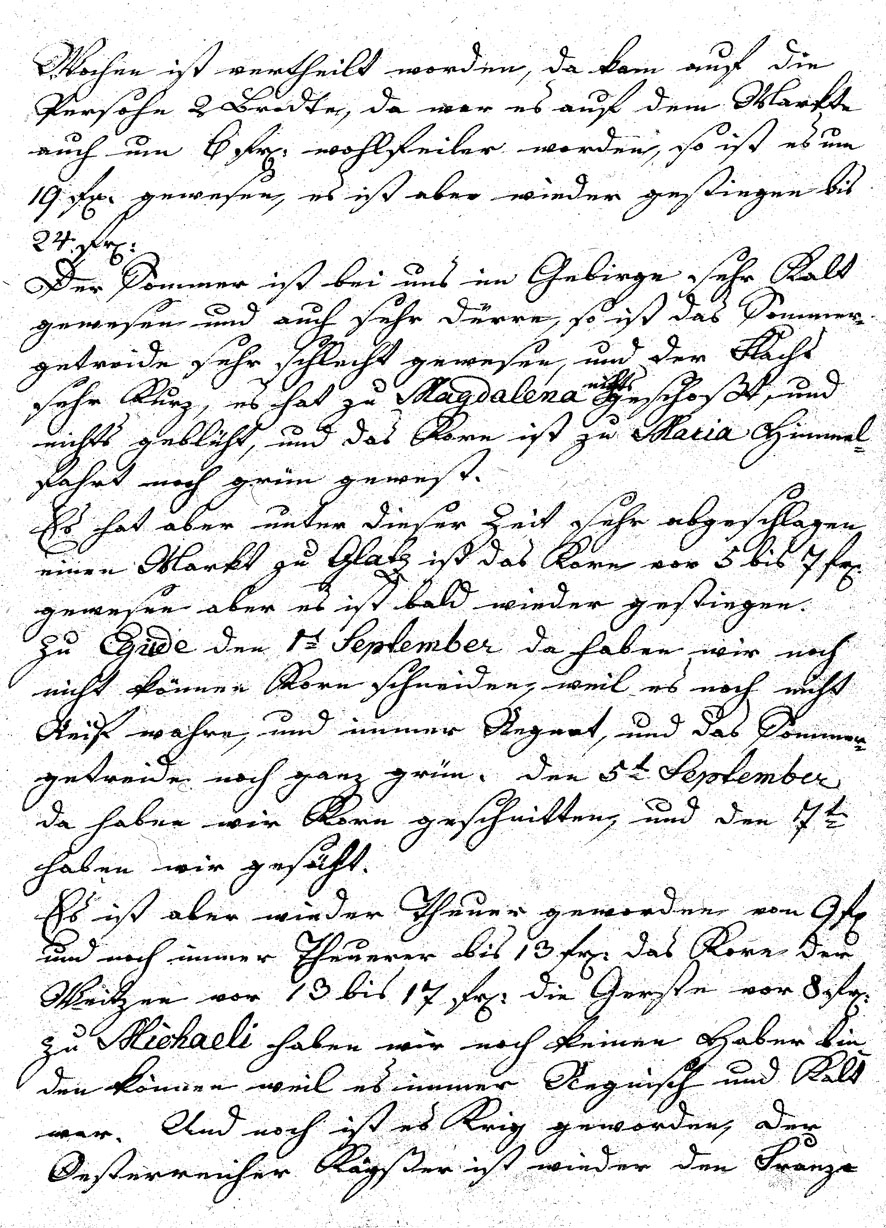 Wochen ist vertheilt worden, da kam auf die
Persohn 2 Brodte, da war es auf dem Markte
auch um 6 frz: wohlfeiler worden, so ist es um
19 frz. gewesen, es ist aber wieder gestiegen bis
24. frz:
Der Sommer ist bei uns im Gebirge sehr Kalt
gewesen und auch sehr dürre, so ist das Sommer=
getreide sehr schlecht gewesen, und der Flachs
sehr Kurz, es hat zu Magdalena nichts geschoßt, und
nichts geblüht, und das Korn ist zu Maria Himmel=
fahrt noch grün gewest.
Es hat aber unter dieser Zeit sehr abgeschlagen
einen Markt zu Glatz ist das Korn vor 5 bis 7 frz.
gewesen aber es ist bald wieder gestiegen.
Zu Egide den 1st September da haben wir noch
nicht können Korn schneiden, weil es noch nicht
Reif wahre, und immer Regnet, und das Sommer=
getreide noch ganz grün. den 5t September
da haben wir Korn geschnitten, und den 7t
haben wir gesäht.
Es ist aber wieder Theuer geworden von 9 frz
und noch immer Theuerer bis 13 frz: das Korn der
Weitzen vor 13 bis 17 frz: die Gerste vor 8 frz:
zu Michaeli haben wir noch keinen Haber bin
den können weil es immer Regnisch und Kalt
war. Und noch ist es Krig geworden, der
Oesterreicher Käyßer ist wieder den Franzo